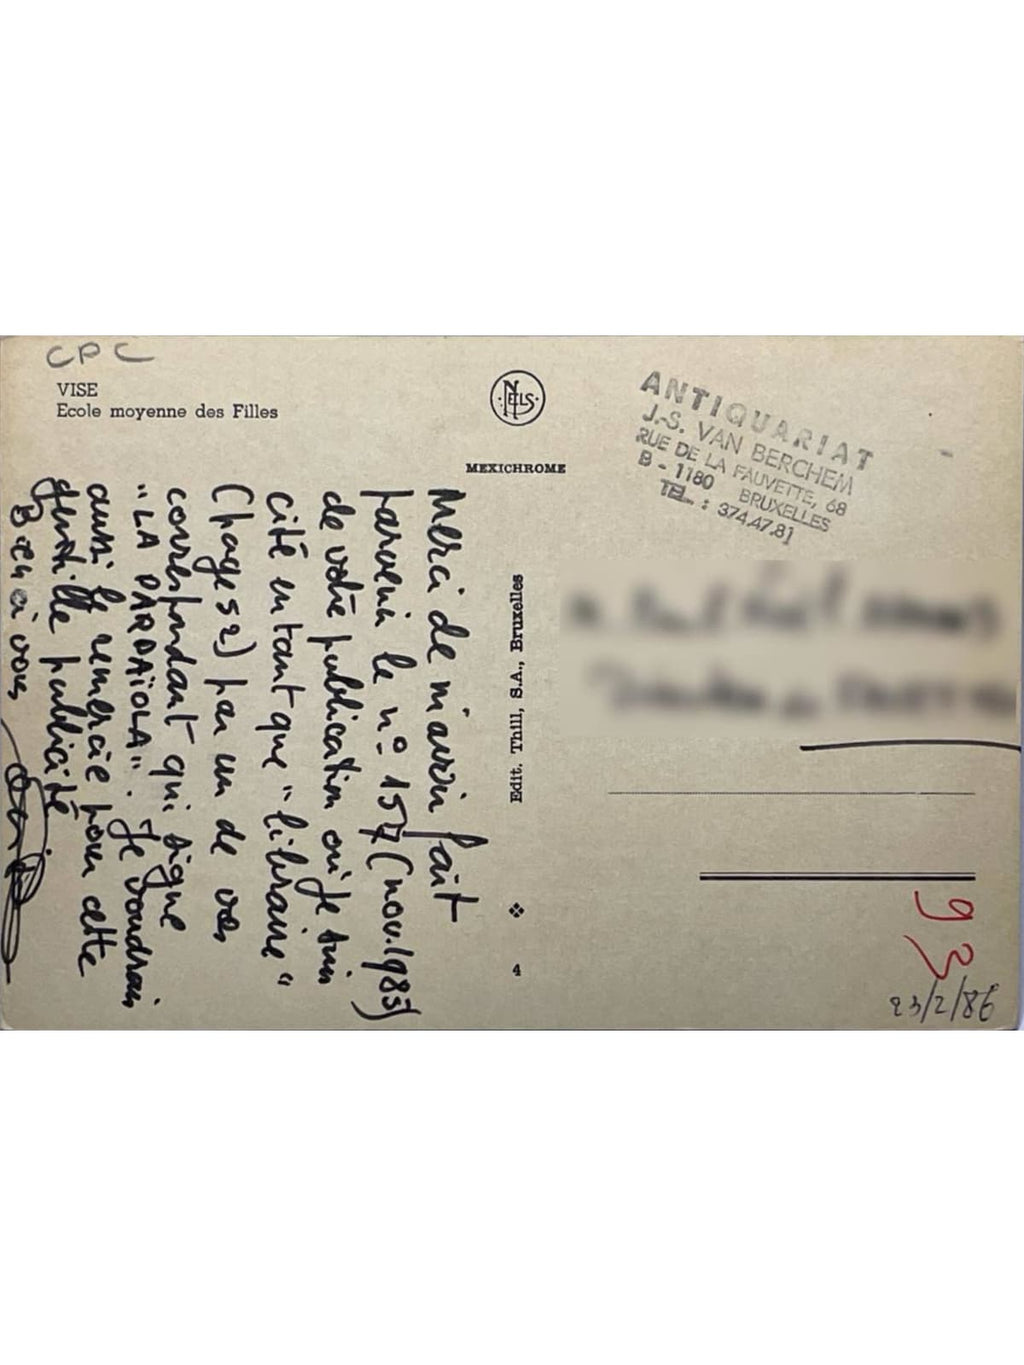 CPC
VISE
Ecole moyenne des Filles
NELS
MEXICHROME
ANTIQUARIAT
J.-S. VAN BERCHEM
RUE DE LA FAUVETTE, 68
B - 1180 BRUXELLES
TEL. : 374.47.81
Merci de m'avoir fait
parvenir le n° 157 (nov. 1985)
de votre publication où je suis
cité en tant que "libraire"
(page 52) par un de vos
correspondant qui signe
"LA PARDAÏOLA". Je voudrais
aussi le remercie pour cette
gentille publicité
Bien à vous
Edit. Thill, S.A., Bruxelles
4
93
23/2/86